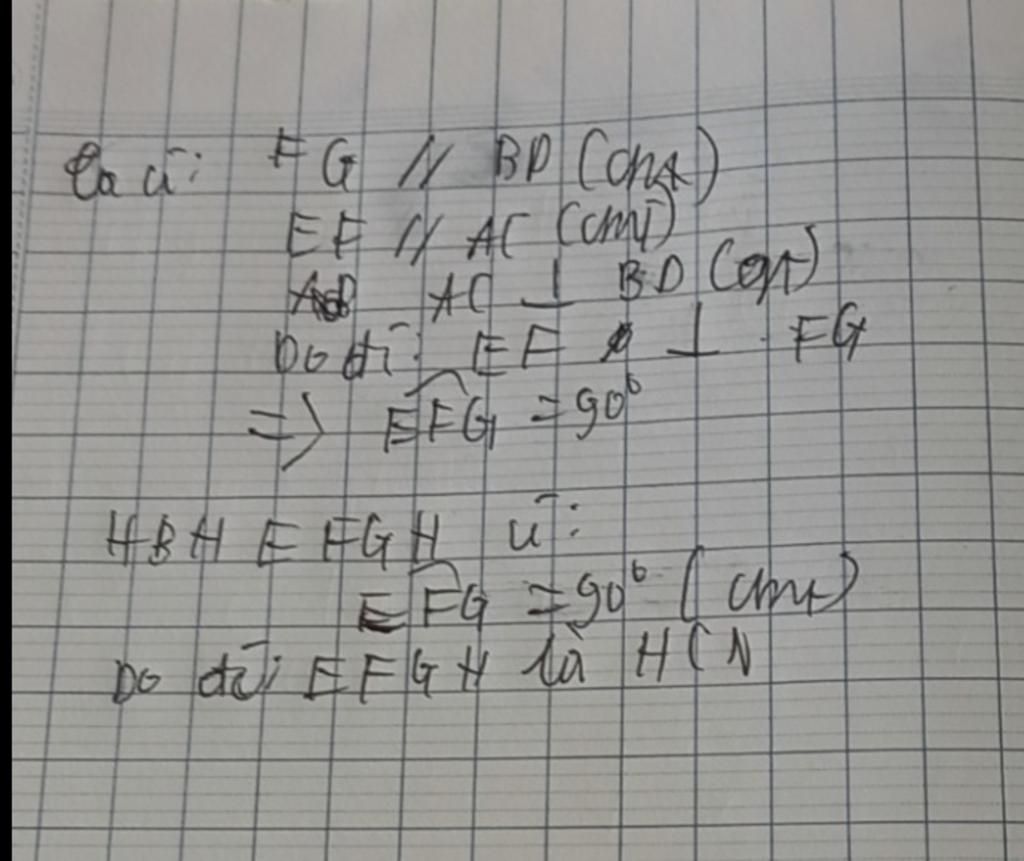 Ta có: FG // BD (cmt)
EF // AC (cmt)
AC ⊥ BD (gt)
Do đó: EF ⊥ FG
=> EFG = 90⁰
HBH EFGH có:
EFG = 90⁰ (cmt)
Do đó: EFGH là HCN